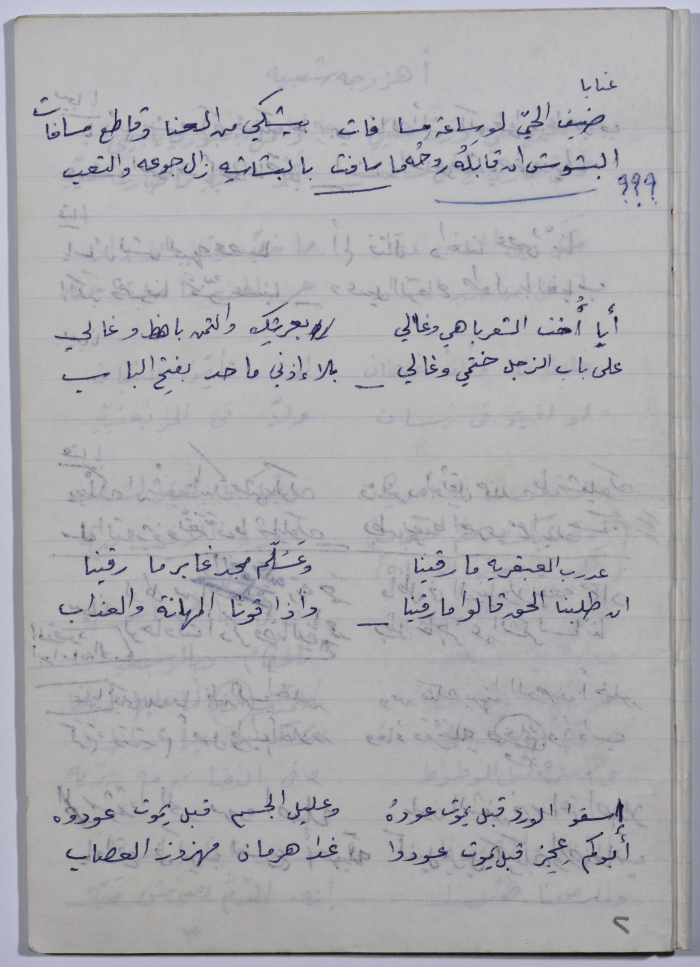 عتابا
ضيف الحيّ لو ساعة مسا فات بيشكي من العنا وقاطع مسافات
البشوش ان قابله روحُه ما سافت بالبشاشه زال جوعه والتعب
؟؟؟
أيا أُخت الشعر باهي وغالي بعرشك والثمن باهظ وغالي
على باب الزجل ختمي وغالي بلا إذني ما حد بفتح الباب
عدرب العبقريه مارقينا وعَسُلّم مجد غابر ما رقينا
ان طلبنا الحق قالوا مارقينا وأذاقونا المهانة والعذاب
إسقوا الورد قبل يموت عودهُ وعليل الجسم قبل يموت عودوه
أبوكم عجيز قبل يموت عودوا غدا هرمان مهزوز العصاب
٢